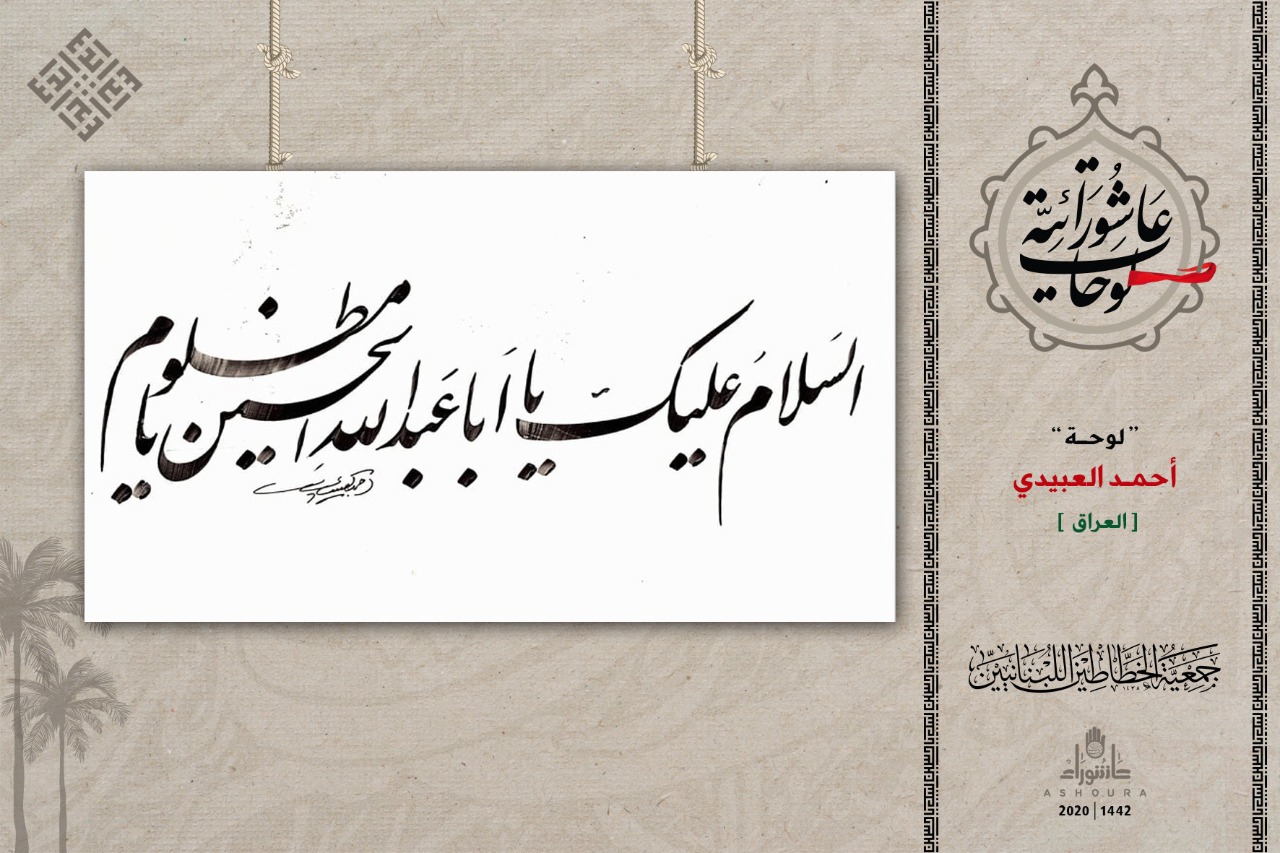 السلام عليك يا اَبا عَبد الله الحسين يا مظلوم
لوحات
عَاشُورَائيَّة
”لوحـة“
أحمـد العبيدي
[العراق]
جَمعيَّة الخطَّاطين اللبنانيّين
١٤٣٨
عاشوراء
ASHOURA
2020 | 1442